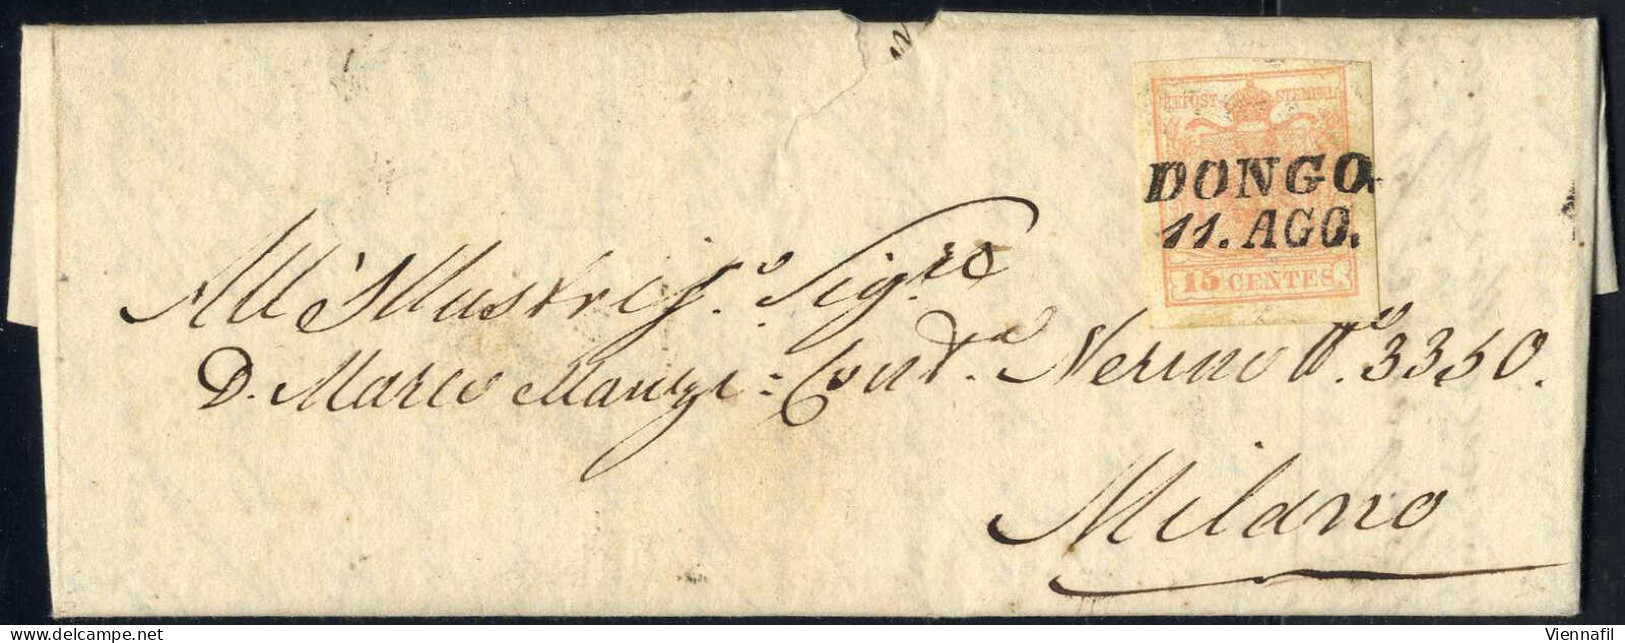 KKPOST STEMPEL
DONGO
11. AGO.
15 CENTES
All' Illustriss.º Sig.re
D. Marco Manzi = Cont.a Nerino N.º 3350.
Milano
Viennafil